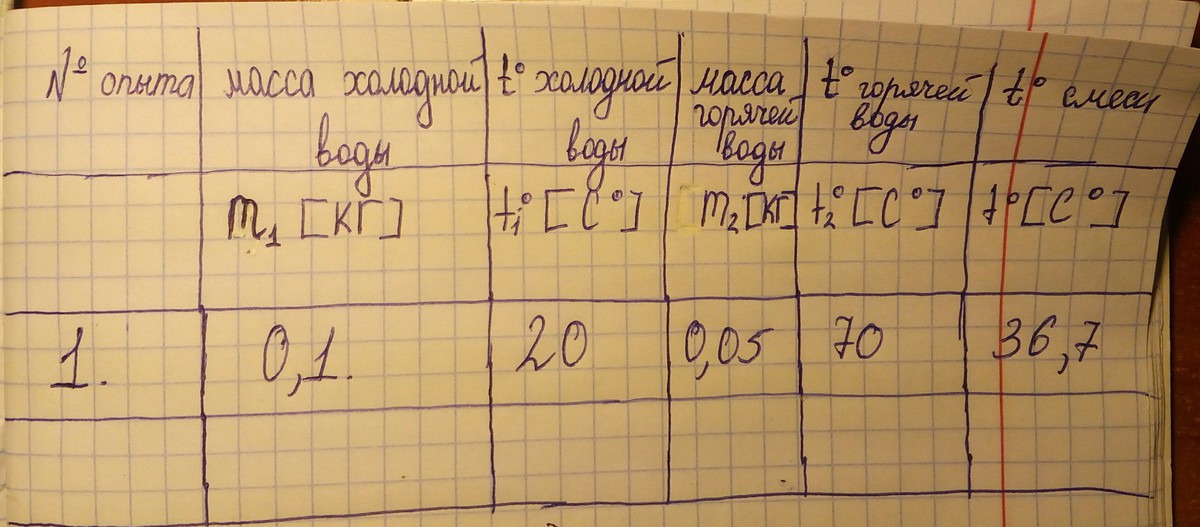 № опыта
масса холодной
воды
t° холодной
воды
масса
горячей
воды
t° горячей
воды
t° смеси
m₁ [кг]
t₁° [C°]
m₂ [кг]
t₂° [C°]
t° [C°]
1.
0,1.
20
0,05
70
36,7